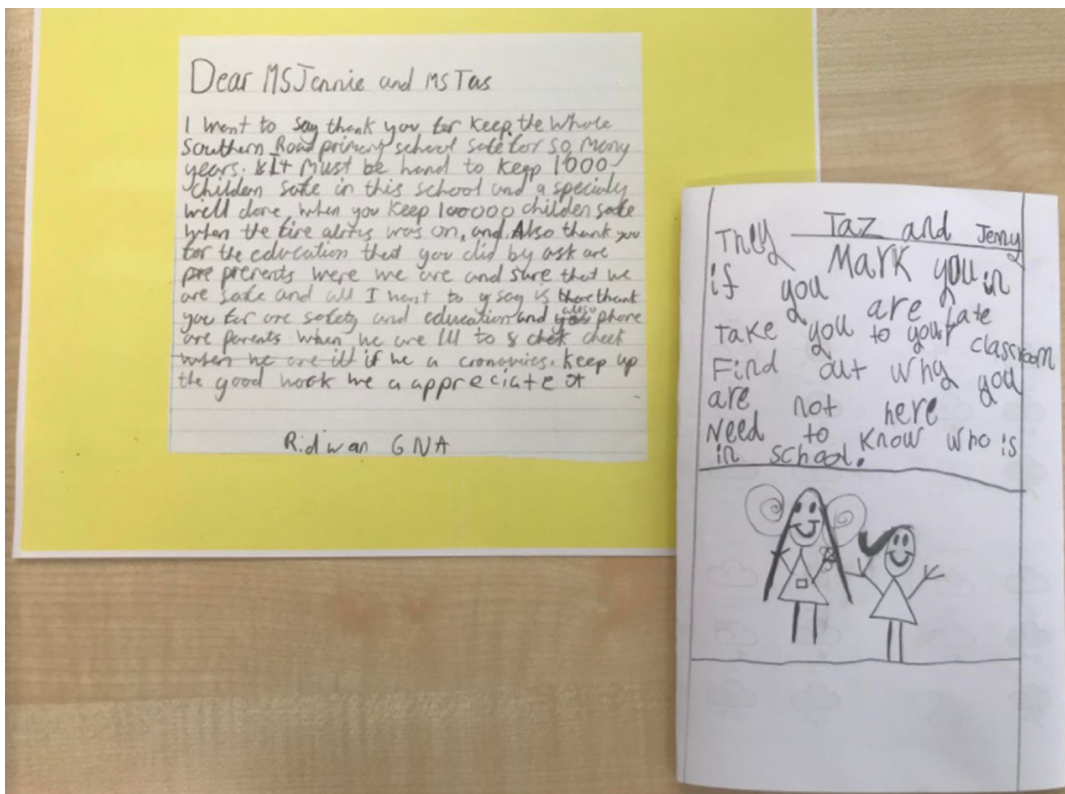 Dear MS Jennie and MS Tas
I want to say thank you for keep the whole
Southern Road primary school safe for so many
years. It must be hard to keep 1000
childen safe in this school and a specialy
well done when you keep 100000 childen safe
when the fire alrms was on, and Also thank you
for the education that you did by ask are
pre prerents were we are and sure that we
are safe and all I want to y say is there thank
you for are safety and education and also phone
are parents when we are Ill to s chek chek
when we are ill if we a cronovires. Keep up
the good work we a appreciate it
Ridwan GNA
Taz and Jenny
They Mark you in
if you are late
Take you to your classroom
Find out why you
are not here
Need to know who is
in school.